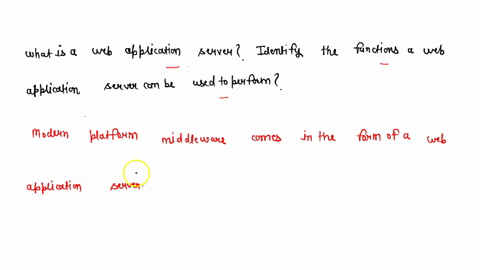 what is a web application server? Identify the functions a web
application server can be used to perform?
Modern platform middleware comes in the form of a web
application server.